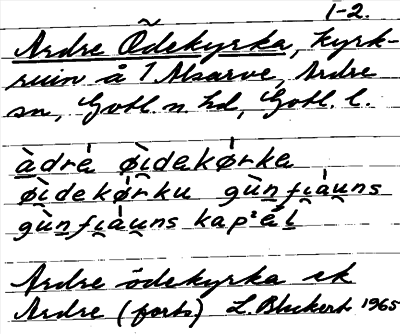 1-2.
Ardre Ödekyrka, Kyrk-
ruin å 1 Alsarve, Ardre
sn, Gotl. n. hd, Gotl. l.
àdrè øi̯dekørke
øi̯dekørku gùnfi̯àu̯ns
gùnfi̯àu̯ns kapèl
Ardre ödekyrka ek
Ardre (forts) 1965